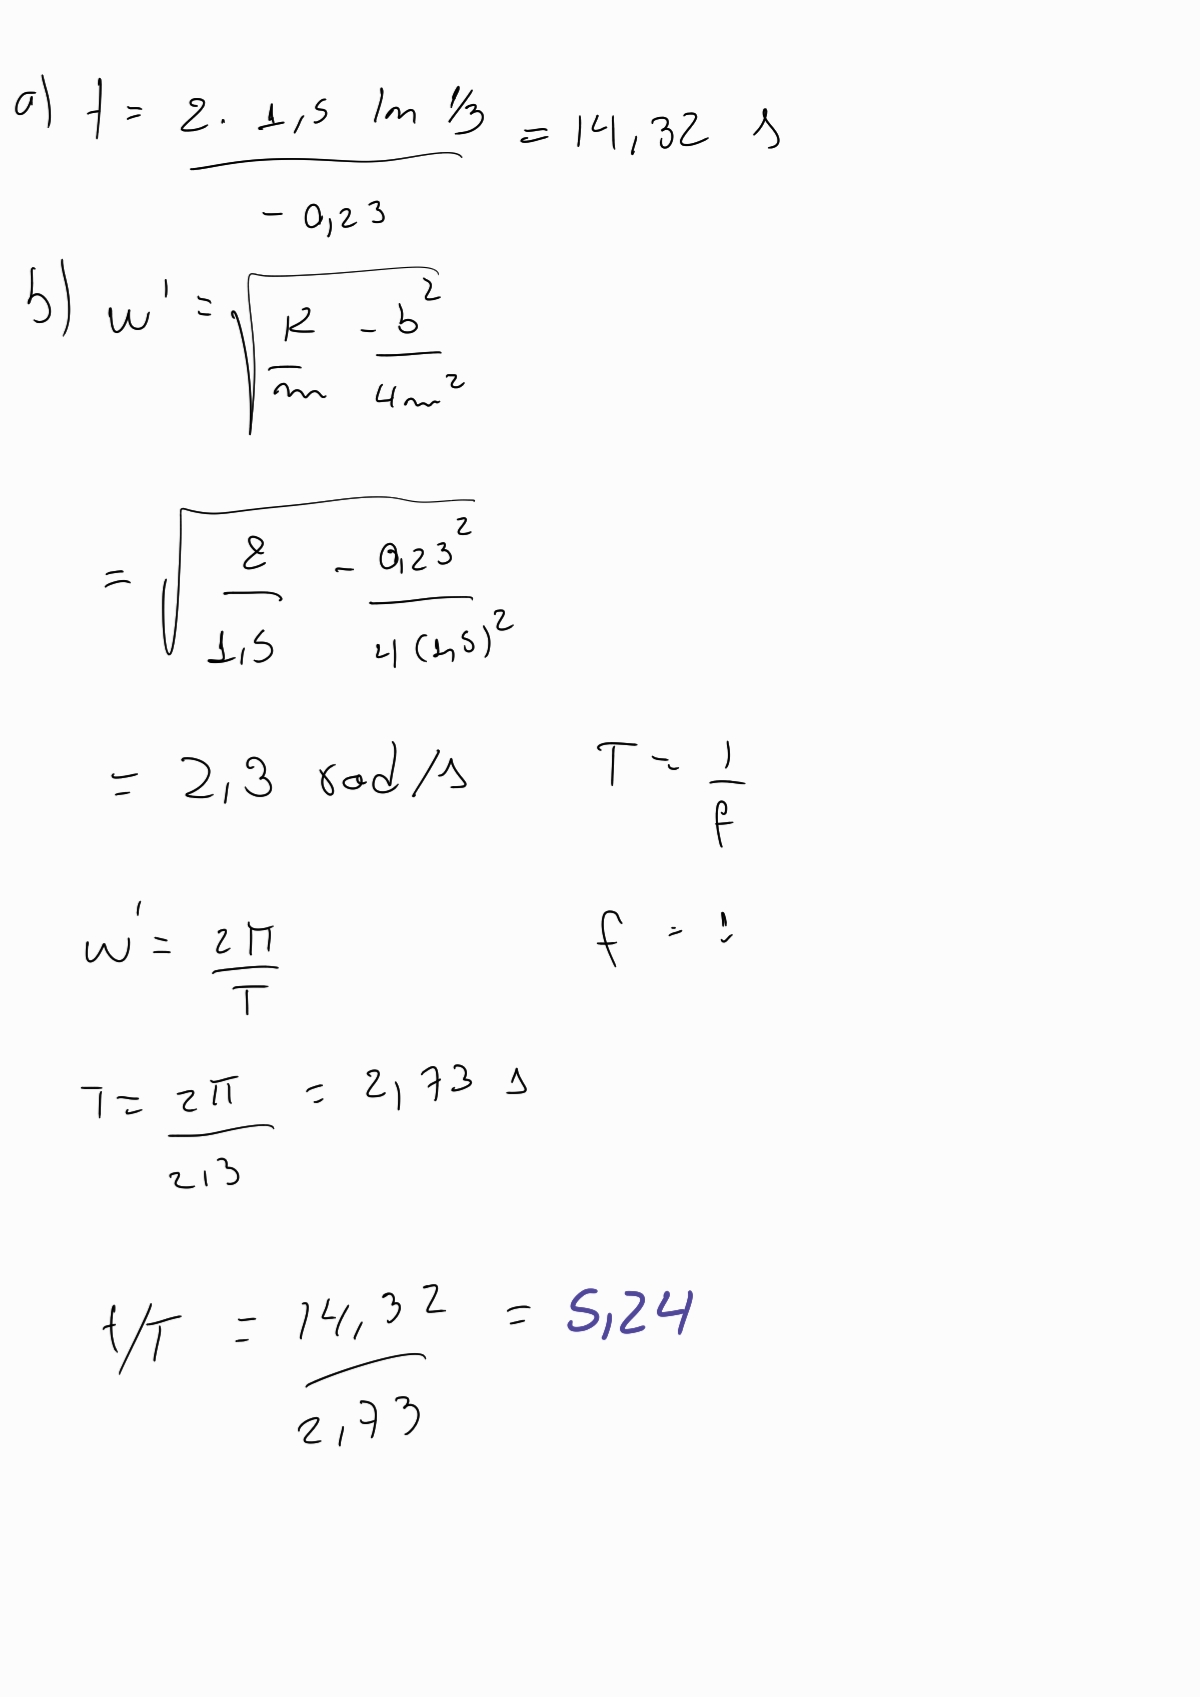 a) t = 2 . 1,5 ln 1/3 = 14,32 s
- 0,23
b) w' = √ K/m - b²/4m²
= √ 8/1,5 - 0,23²/4(1,5)²
= 2,3 rad/s
T = 1/f
w' = 2π/T
f =
T = 2π/2,3 = 2,73 s
t/T = 14,32/2,73 = 5,24